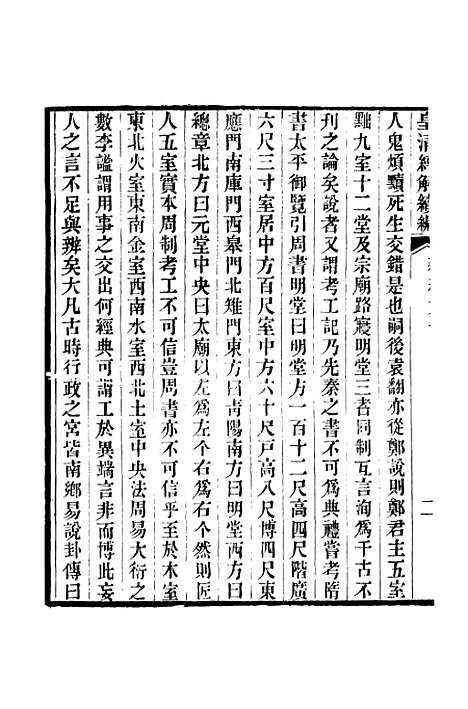 皇清經解續編
二
人鬼煩黷死生交錯是也嗣後袁翻亦從鄭說則鄭君主五室
黜九室十二堂及宗廟路寢明堂三者同制互言洵爲千古不
刊之論矣說者又謂考工記乃先秦之書不可爲典禮嘗考隋
書太平御覽引周書明堂曰明堂方一百十二尺高四尺階廣
六尺三寸室居中方百尺室中方六十尺戸高八尺博四尺東
應門南庫門西皋門北雉門東方曰靑陽南方曰明堂西方曰
總章北方曰元堂中央曰太廟以左爲左个右爲右个然則匠
人五室實本周制考工不可信豈周書亦不可信乎至於木室
東北火室東南金室西南水室西北土室中央法周易大衍之
數李謐謂用事之交出何經典可謂工於異端言非而博此妄
人之言不足與辨矣大凡古時行政之宮皆南鄉易說卦傳曰